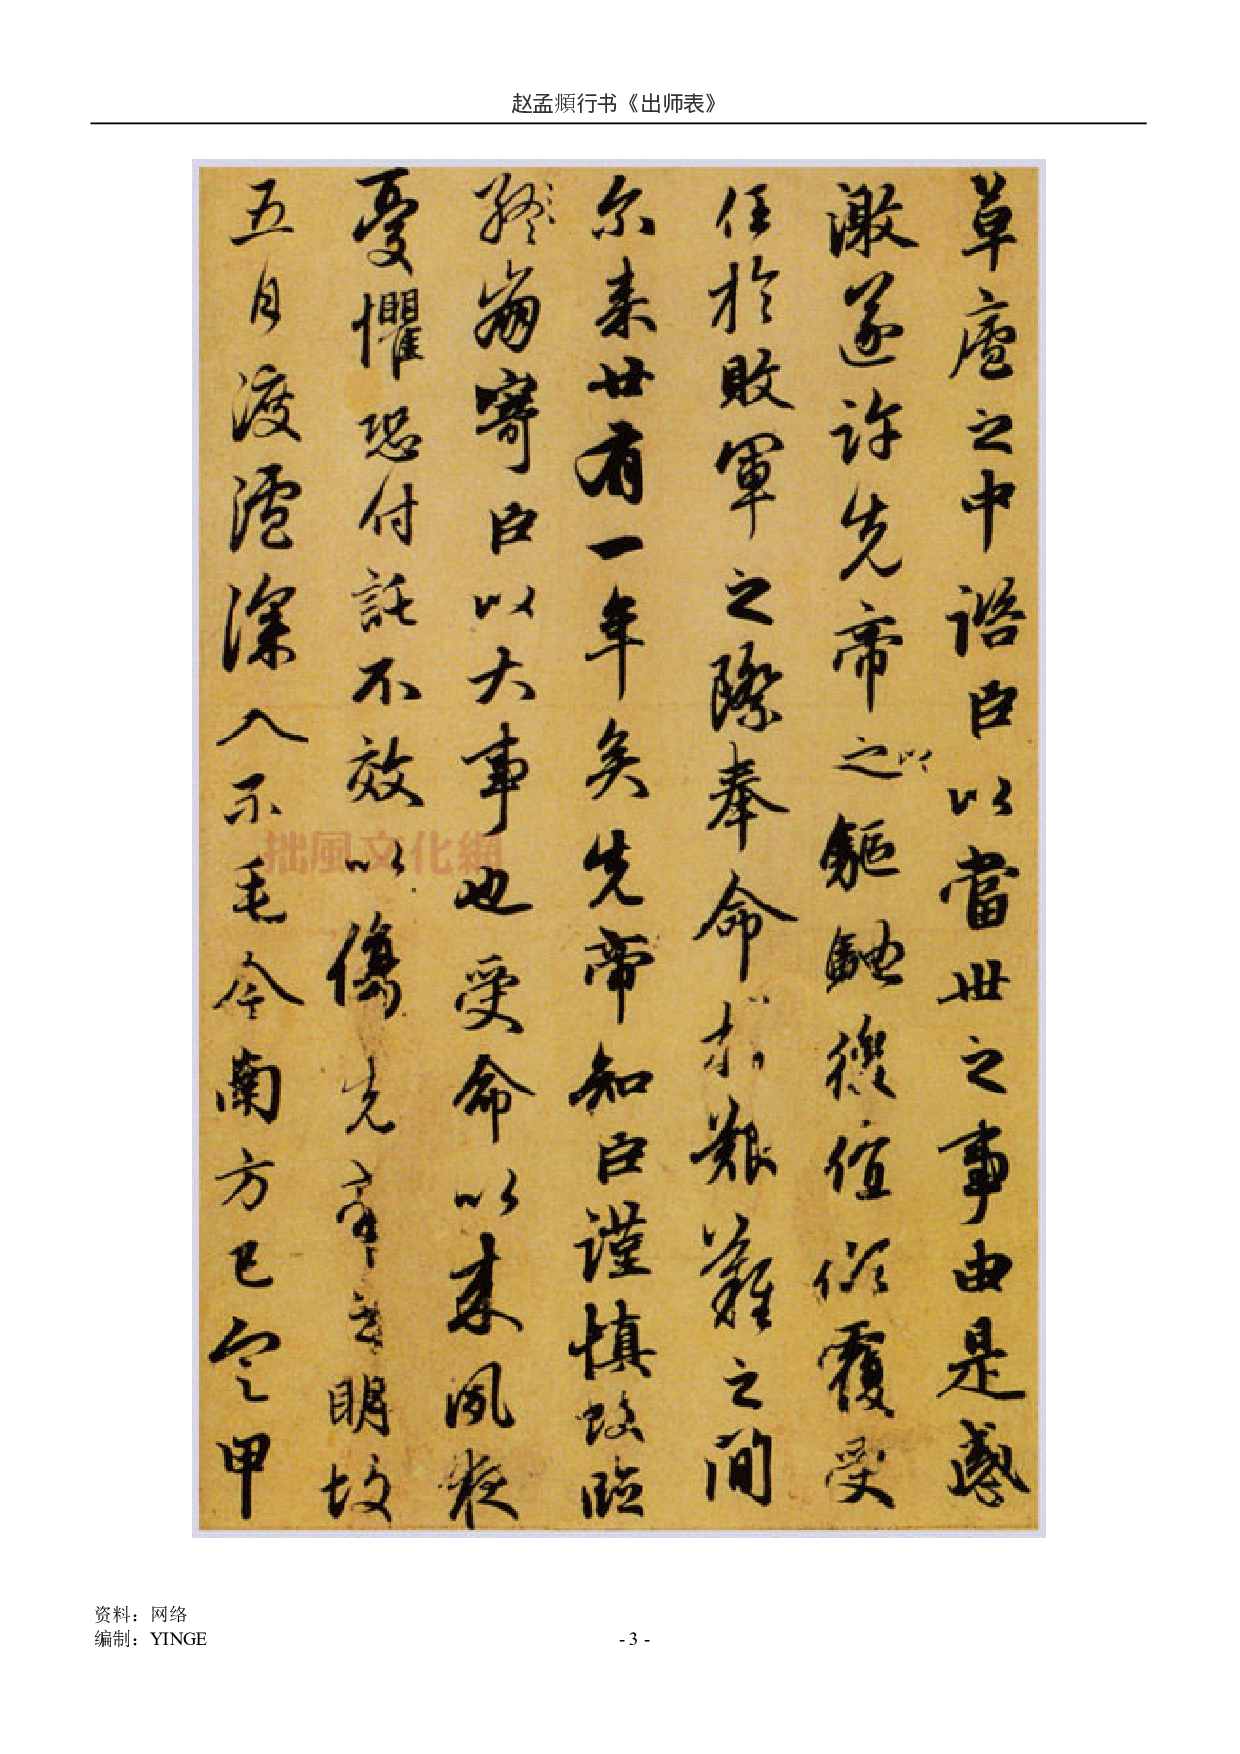 赵孟頫行书《出师表》
草廬之中諮臣以當世之事由是感
激遂許先帝之以驅馳後值傾覆受
任於敗軍之際奉命於艱難之間
尔来廿有一年矣先帝知臣謹慎故臨
終崩寄臣以大事也受命以来夙夜
憂懼恐付託不效以傷先帝之明故
五月渡瀘深入不毛今南方已定甲
拙風文化網
资料：网络
编制：YINGE
- 3 -